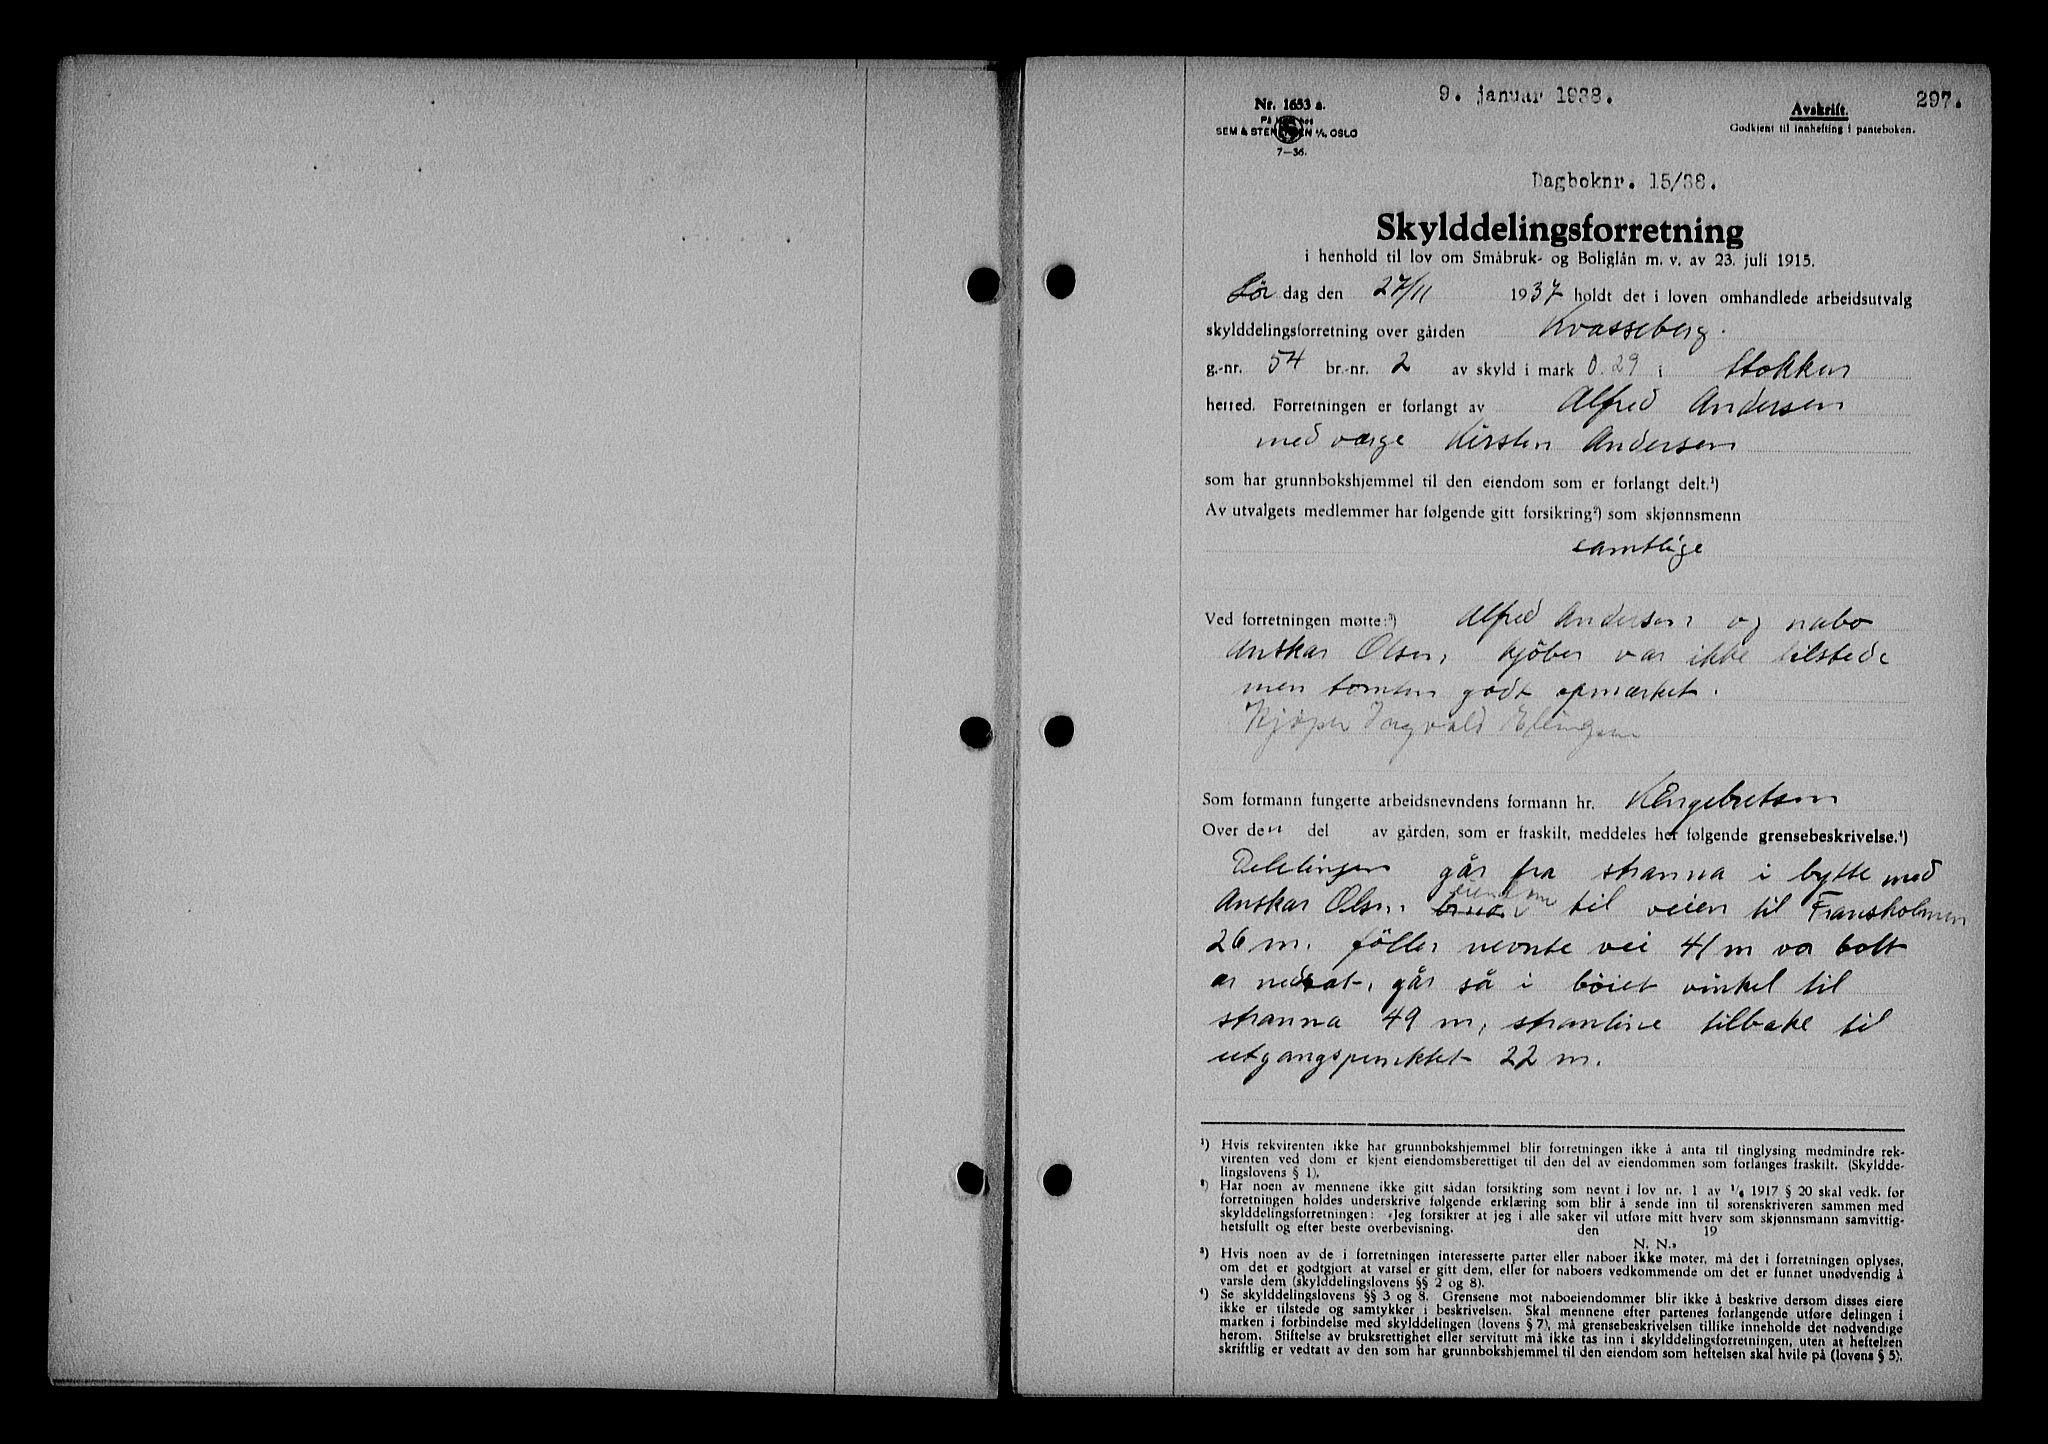 9. januar 1938.
297.
Nr. 1653 a.
På lager hos
SEM & STENERSEN A/S, OSLO
7—36.
Avskrift.
Godkjent til innhefting i panteboken.
Dagboknr. 15/38.
Skylddelingsforretning
i henhold til lov om Småbruk- og Boliglån m. v. av 23. juli 1915.
Lör dag den 27/11 1937 holdt det i loven omhandlede arbeidsutvalg
skylddelingsforretning over gården Kvasseberg.
g.-nr. 54 br.-nr. 2 av skyld i mark 0.29 i Stokken
herred. Forretningen er forlangt av Alfred Andersen
med værge Kirsten Andersen
som har grunnbokshjemmel til den eiendom som er forlangt delt.¹)
Av utvalgets medlemmer har følgende gitt forsikring²) som skjønnsmenn
samtlige
Ved forretningen møtte:³) Alfred Andersen og nabo
Anskar Olsen, kjöber var ikke tilstede
men tomten godt opmærket.
Kjøper Ingvald Ellingsen
Som formann fungerte arbeidsnevndens formann hr. K Engebretsen
Over den del av gården, som er fraskilt, meddeles her følgende grensebeskrivelse.⁴)
Delelinjen går fra stranna i bytte med
Anskar Olsen eiendom til veien til Fransholmen
26 m. föller nevnte vei 41 m va bolt
er nedsat, går så i böiet vinkel til
stranna 49 m, stranline tilbake til
utgangspunktet 22 m.
¹) Hvis rekvirenten ikke har grunnbokshjemmel blir forretningen ikke å anta til tinglysing medmindre rek-
virenten ved dom er kjent eiendomsberettiget til den del av eiendommen som forlanges fraskilt. (Skyldde-
lingslovens § 1).
²) Har noen av mennene ikke gitt sådan forsikring som nevnt i lov nr. 1 av 1/6 1917 § 20 skal vedk. før
forretningen holdes underskrive følgende erklæring som blir å sende inn til sorenskriveren sammen med
skylddelingsforretningen: »Jeg forsikrer at jeg i alle saker vil utføre mitt hverv som skjønnsmann samvittig-
hetsfullt og efter beste overbevisning. den 19
N. N.»
³) Hvis noen av de i forretningen interesserte parter eller naboer ikke møter, må det i forretningen oplyses,
om det er godtgjort at varsel er gitt dem, eller for naboers vedkommende om det er funnet unødvendig å
varsle dem (skylddelingslovens §§ 2 og 8).
⁴) Se skylddelingslovens §§ 3 og 8. Grensene mot naboeiendommer blir ikke å beskrive dersom disses eiere
ikke er tilstede og samtykker i beskrivelsen. Skal mennene efter partenes forlangende utføre delingen i
marken i forbindelse med skylddelingen (lovens § 7), må grensebeskrivelsen tillike inneholde det nødvendige
herom. Stiftelse av bruksrettighet eller servitutt må ikke tas inn i skylddelingsforretningen, uten at heftelsen
skriftlig er vedtatt av den som har grunnbokshjemmel til den eiendom som heftelsen skal hvile på (lovens § 5).